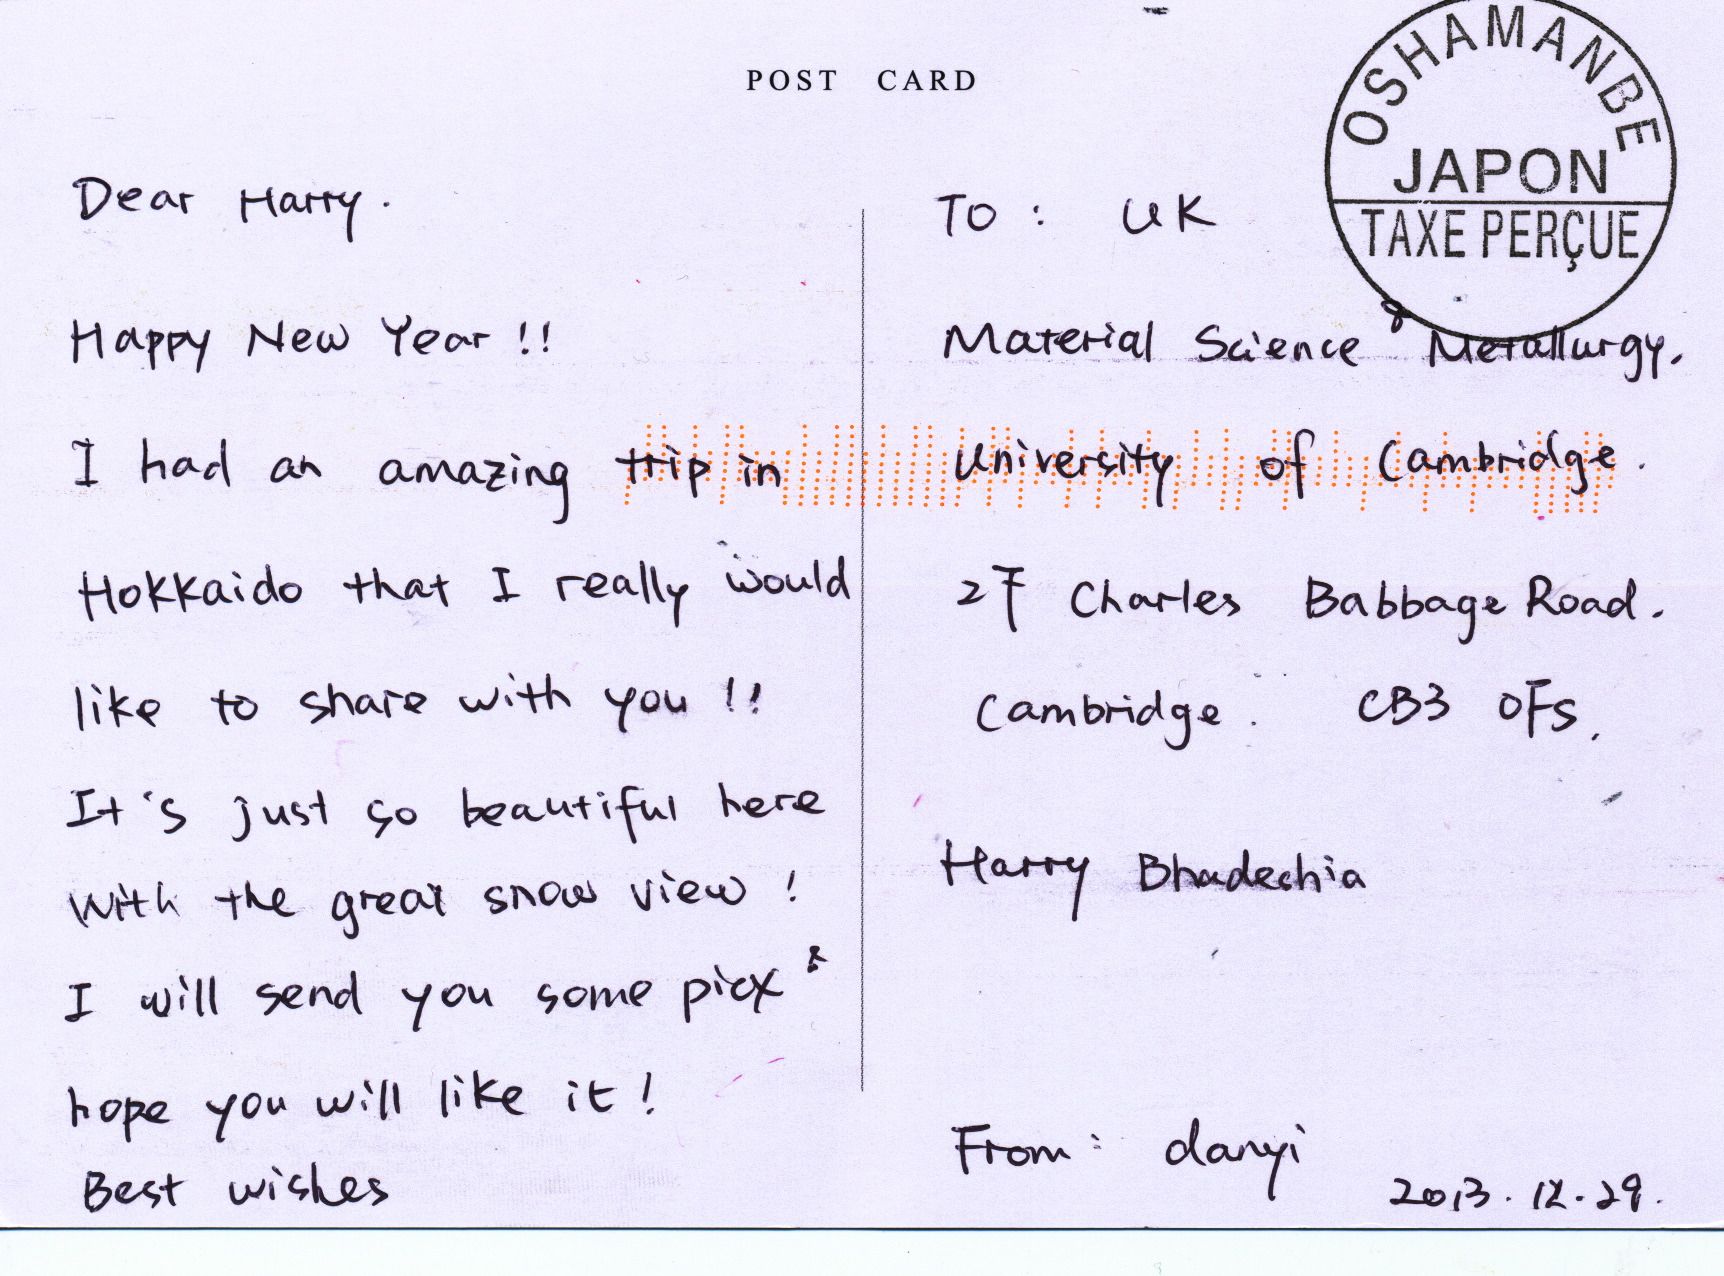 POST CARD
OSHAMANBE
JAPON
TAXE PERÇUE
Dear Harry.
Happy New Year !!
I had an amazing trip in
Hokkaido that I really would
like to share with you !!
It's just so beautiful here
with the great snow view !
I will send you some picx &
hope you will like it !
Best wishes
To : UK
Material Science & Metallurgy.
University of Cambridge.
27 Charles Babbage Road.
Cambridge. CB3 0FS.
Harry Bhadeshia
From: danyi
2013.12.29.